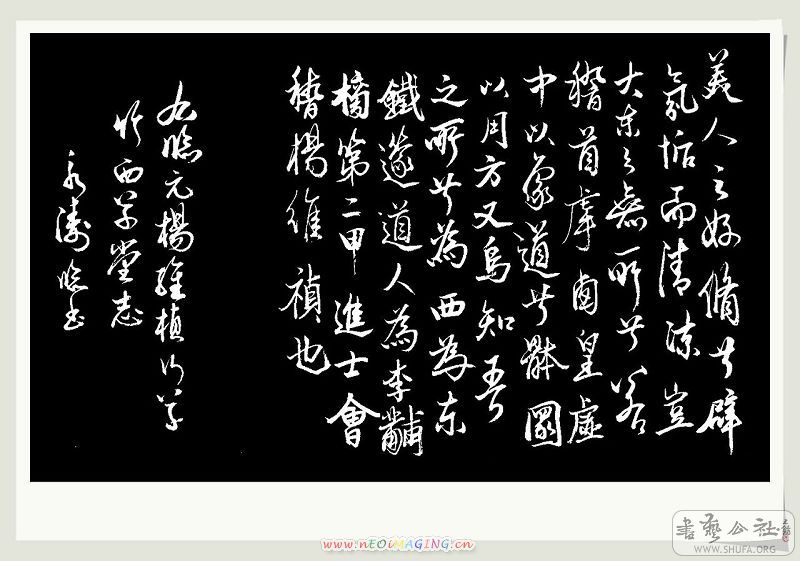 美人之好脩者辟
氛垢而清涼豈
大東之無所者若
稽首皇虛
中以象道者體圓
以用方又烏知吾
之所者為西為东
鐵篴道人為李黼
榜第二甲進士會
稽楊維禎也
右臨元楊維楨行草
竹西草堂志
永濤臨书
www.nEOiMAGING.cn
書藝公社
WWW.SHUFA.ORG